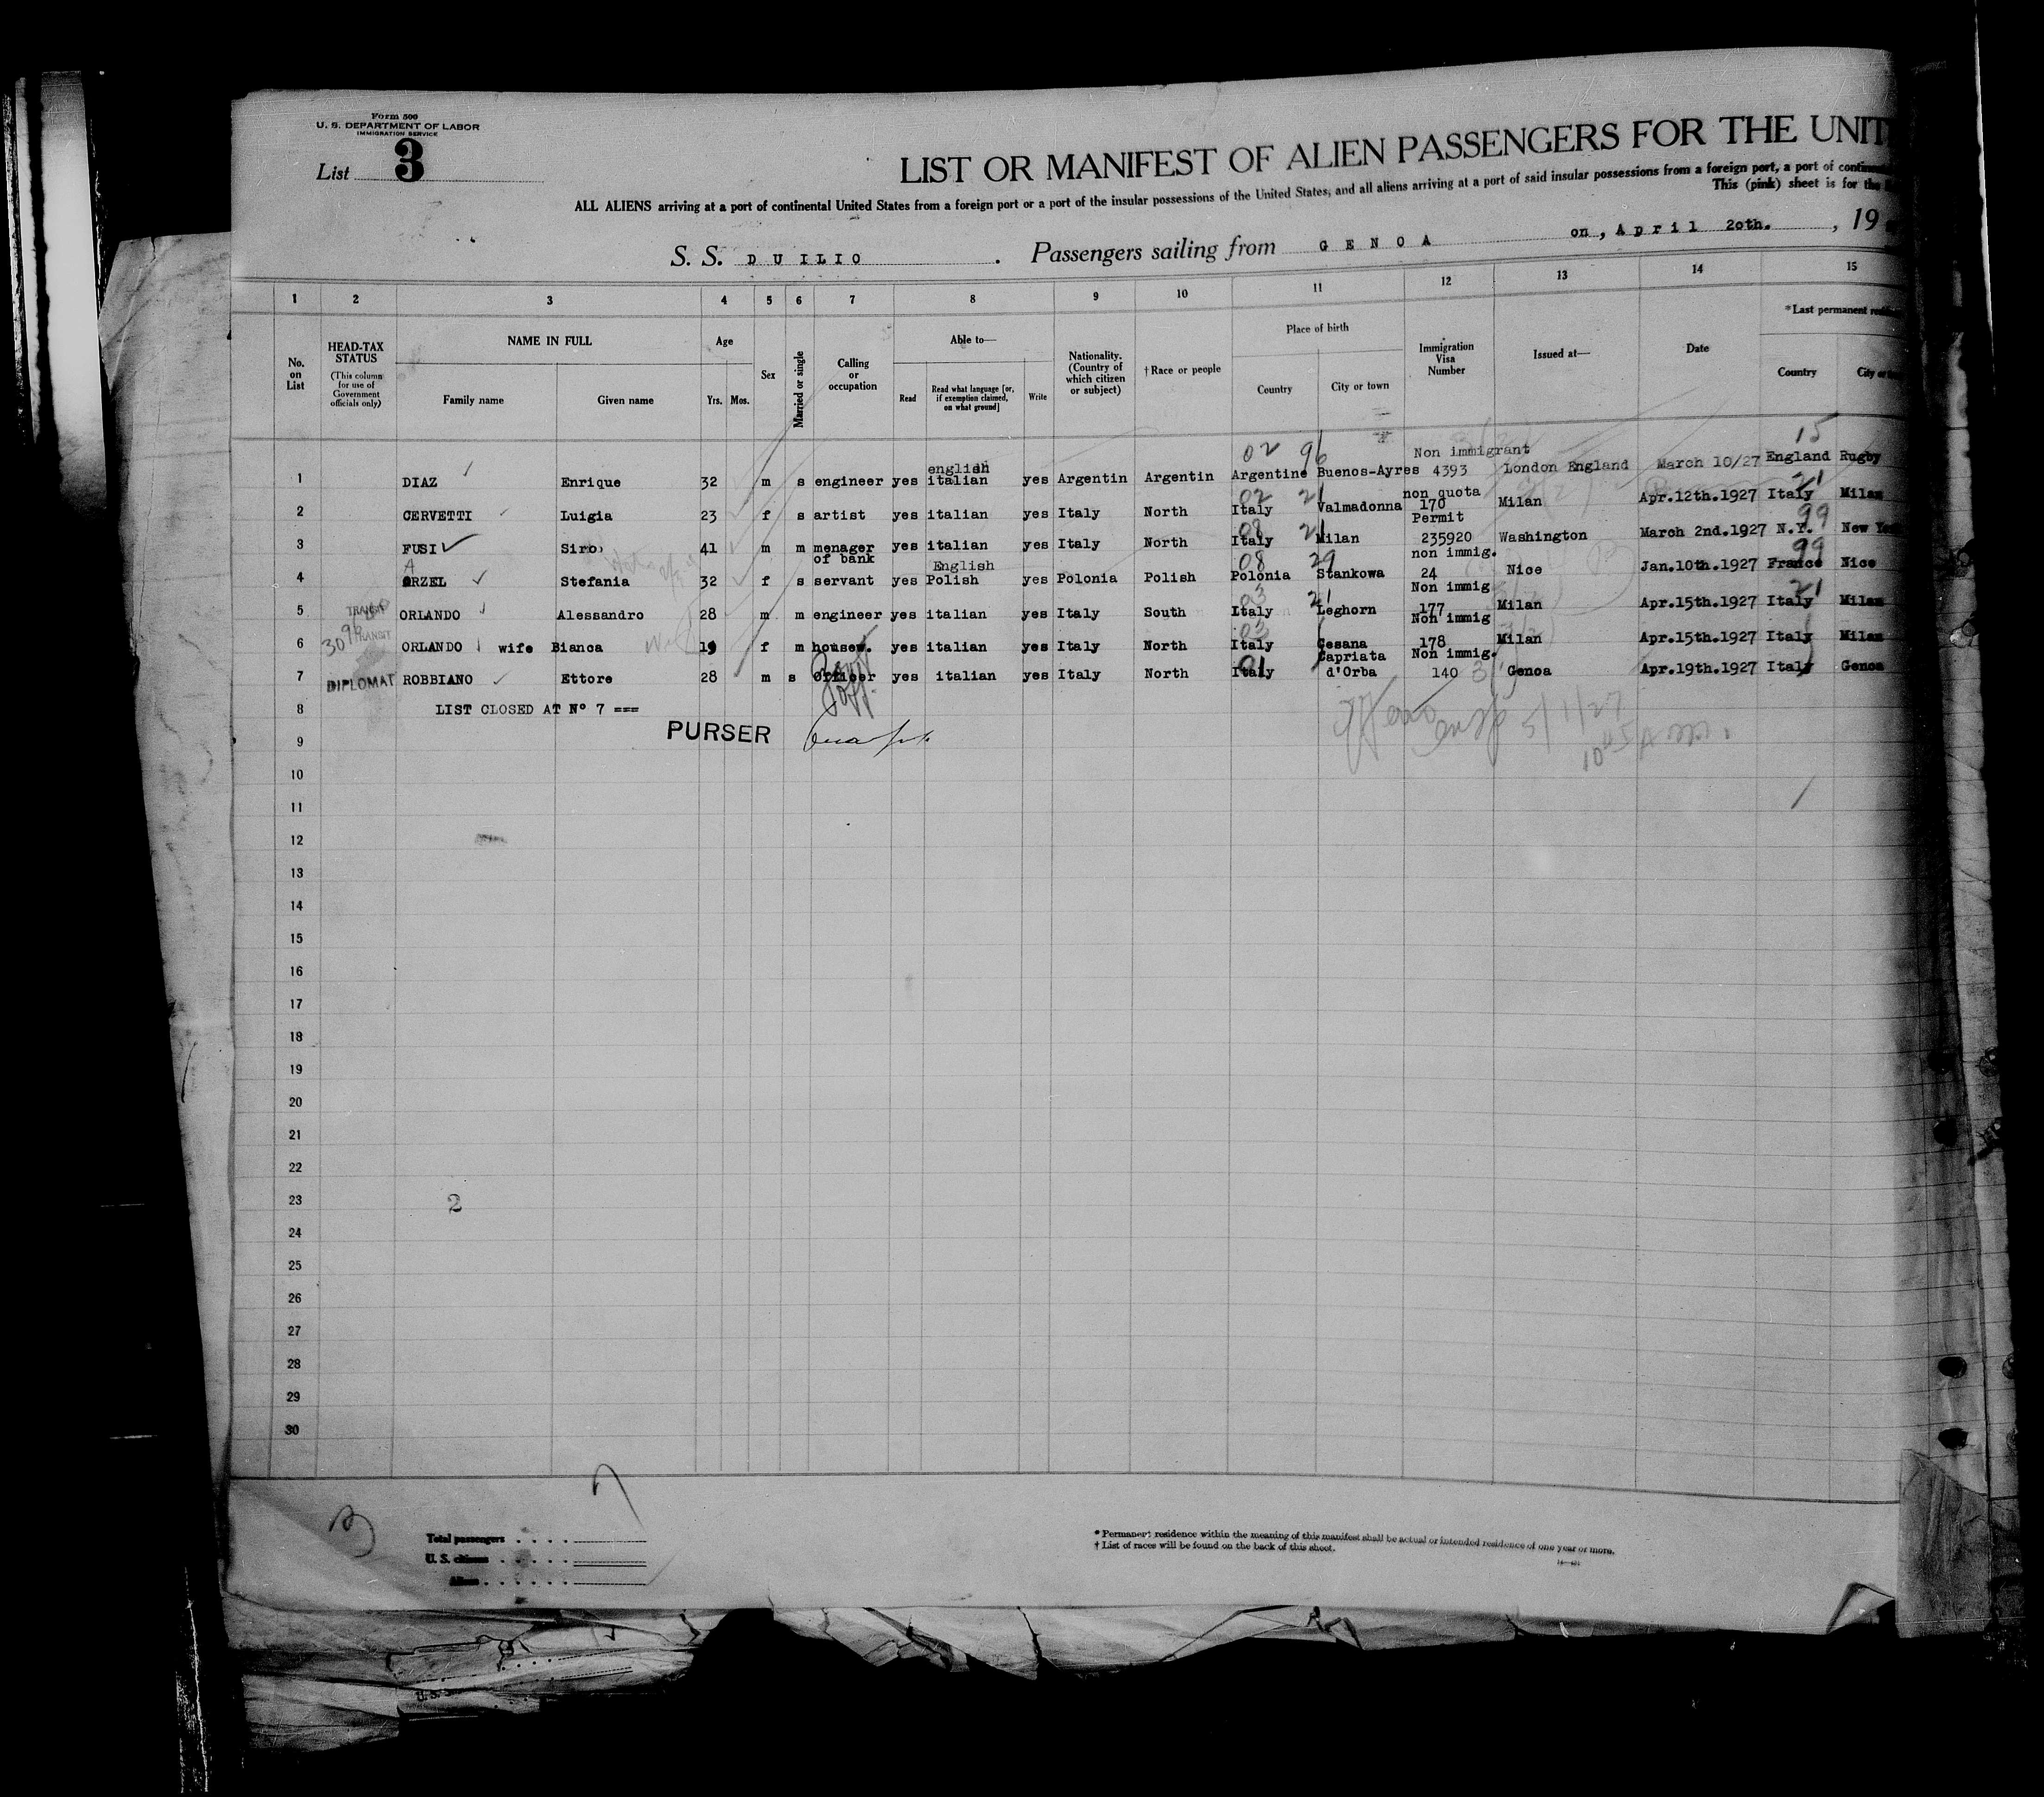 Form 500
U. S. DEPARTMENT OF LABOR
IMMIGRATION SERVICE
List 3
LIST OR MANIFEST OF ALIEN PASSENGERS FOR THE UNIT
ALL ALIENS arriving at a port of continental United States from a foreign port or a port of the insular possessions of the United States, and all aliens arriving at a port of said insular possessions from a foreign port, a port of
This (pink) sheet is for the
S. S. DUILIO . Passengers sailing from GENOA on, April 2oth. , 19
1 2 3 4 5 6 7 8 9 10 11 12 13 14 15
No. on List
HEAD-TAX STATUS (This column for use of Government officials only)
NAME IN FULL Family name Given name
Age Yrs. Mos.
Sex
Married or single
Calling or occupation
Able to— Read Read what language [or, if exemption claimed, on what ground] Write
Nationality. (Country of which citizen or subject)
† Race or people
Place of birth Country City or town
Immigration Visa Number
Issued at—
Date
* Last permanent Country City or
02 96 15
english Non immigrant
1 DIAZ Enrique 32 m s engineer yes italian yes Argentin Argentin Argentine Buenos-Ayres 4393 London England March 10/27 England Rugby
02 21 non quota 21
2 CERVETTI Luigia 23 f s artist yes italian yes Italy North Italy Valmadonna 170 Milan Apr.12th.1927 Italy Milan
08 21 Permit 99
3 FUSI Siro 41 m m menager of bank yes italian yes Italy North Italy Milan 235920 Washington March 2nd.1927 N.Y. New
A English 08 29 non immig. 99
4 ORZEL Stefania 32 f s servant yes Polish yes Polonia Polish Polonia Stankowa 24 Nice Jan.10th.1927 France Nice
TRANSIT 03 21 Non immig 21
5 ORLANDO Alessandro 28 m m engineer yes italian yes Italy South Italy Leghorn 177 Milan Apr.15th.1927 Italy Milan
TRANSIT 03 Non immig
6 ORLANDO wife Bianca 19 f m housew. yes italian yes Italy North Italy Cesana 178 Milan Apr.15th.1927 Italy Milan
01 Capriata Non immig.
7 DIPLOMAT ROBBIANO Ettore 28 m s Officer yes italian yes Italy North Italy d'Orba 140 Genoa Apr.19th.1927 Italy Genoa
8 LIST CLOSED AT Nº 7 ===
PURSER
5/1/27
9
10
11
12
13
14
15
16
17
18
19
20
21
22
23 2
24
25
26
27
28
29
30
7
Total passengers
U. S. citizens
Aliens
* Permanent residence within the meaning of this manifest shall be actual or intended residence of one year or more.
† List of races will be found on the back of this sheet.
U. S.